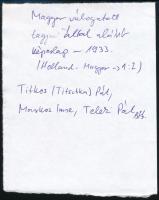 Magyar válogatott
tagjai által aláírt
képeslap - 1933.
(Holland - Magyar → 1:2)
Titkos (Titschka) Pál,
Markos Imre, Teleki Pál,